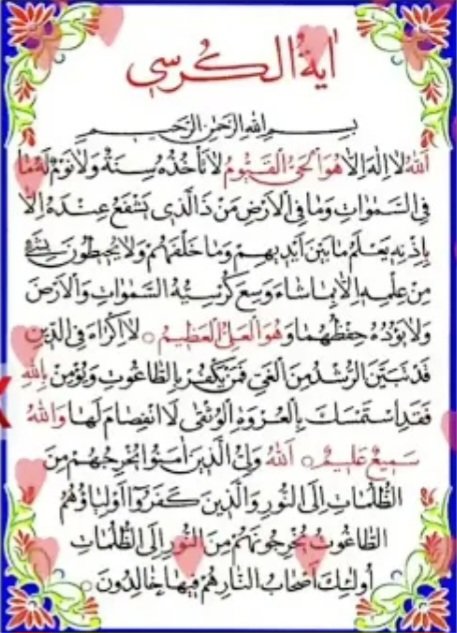 اٰيَةُ الْكُرْسِي
بِسْمِ اللّٰهِ الرَّحْمٰنِ الرَّحِيمِ
اَللّٰهُ لَا اِلٰهَ اِلَّا هُوَ اَلْحَيُّ الْقَيُّومُ لَا تَأْخُذُهُ سِنَةٌ وَلَا نَوْمٌ لَهُ مَا
فِي السَّمٰوَاتِ وَمَا فِي الْاَرْضِ مَنْ ذَا الَّذِي يَشْفَعُ عِنْدَهُ اِلَّا
بِاِذْنِهِ يَعْلَمُ مَا بَيْنَ اَيْدِيهِمْ وَمَا خَلْفَهُمْ وَلَا يُحِيطُونَ بِشَيْءٍ
مِنْ عِلْمِهِ اِلَّا بِمَا شَاءَ وَسِعَ كُرْسِيُّهُ السَّمٰوَاتِ وَالْاَرْضَ
وَلَا يَؤُدُهُ حِفْظُهُمَا وَهُوَ الْعَلِيُّ الْعَظِيمُ لَا اِكْرَاهَ فِي الدِّينِ
قَدْ تَبَيَّنَ الرُّشْدُ مِنَ الْغَيِّ فَمَنْ يَكْفُرْ بِالطَّاغُوتِ وَيُؤْمِنْ بِاللّٰهِ
فَقَدِ اسْتَمْسَكَ بِالْعُرْوَةِ الْوُثْقٰى لَا انْفِصَامَ لَهَا وَاللّٰهُ
سَمِيعٌ عَلِيمٌ اَللّٰهُ وَلِيُّ الَّذِينَ اٰمَنُوا يُخْرِجُهُمْ مِنَ
الظُّلُمَاتِ اِلَى النُّورِ وَالَّذِينَ كَفَرُوا اَوْلِيَاؤُهُمُ
الطَّاغُوتُ يُخْرِجُونَهُمْ مِنَ النُّورِ اِلَى الظُّلُمَاتِ
اُولٰئِكَ اَصْحَابُ النَّارِ هُمْ فِيهَا خَالِدُونَ